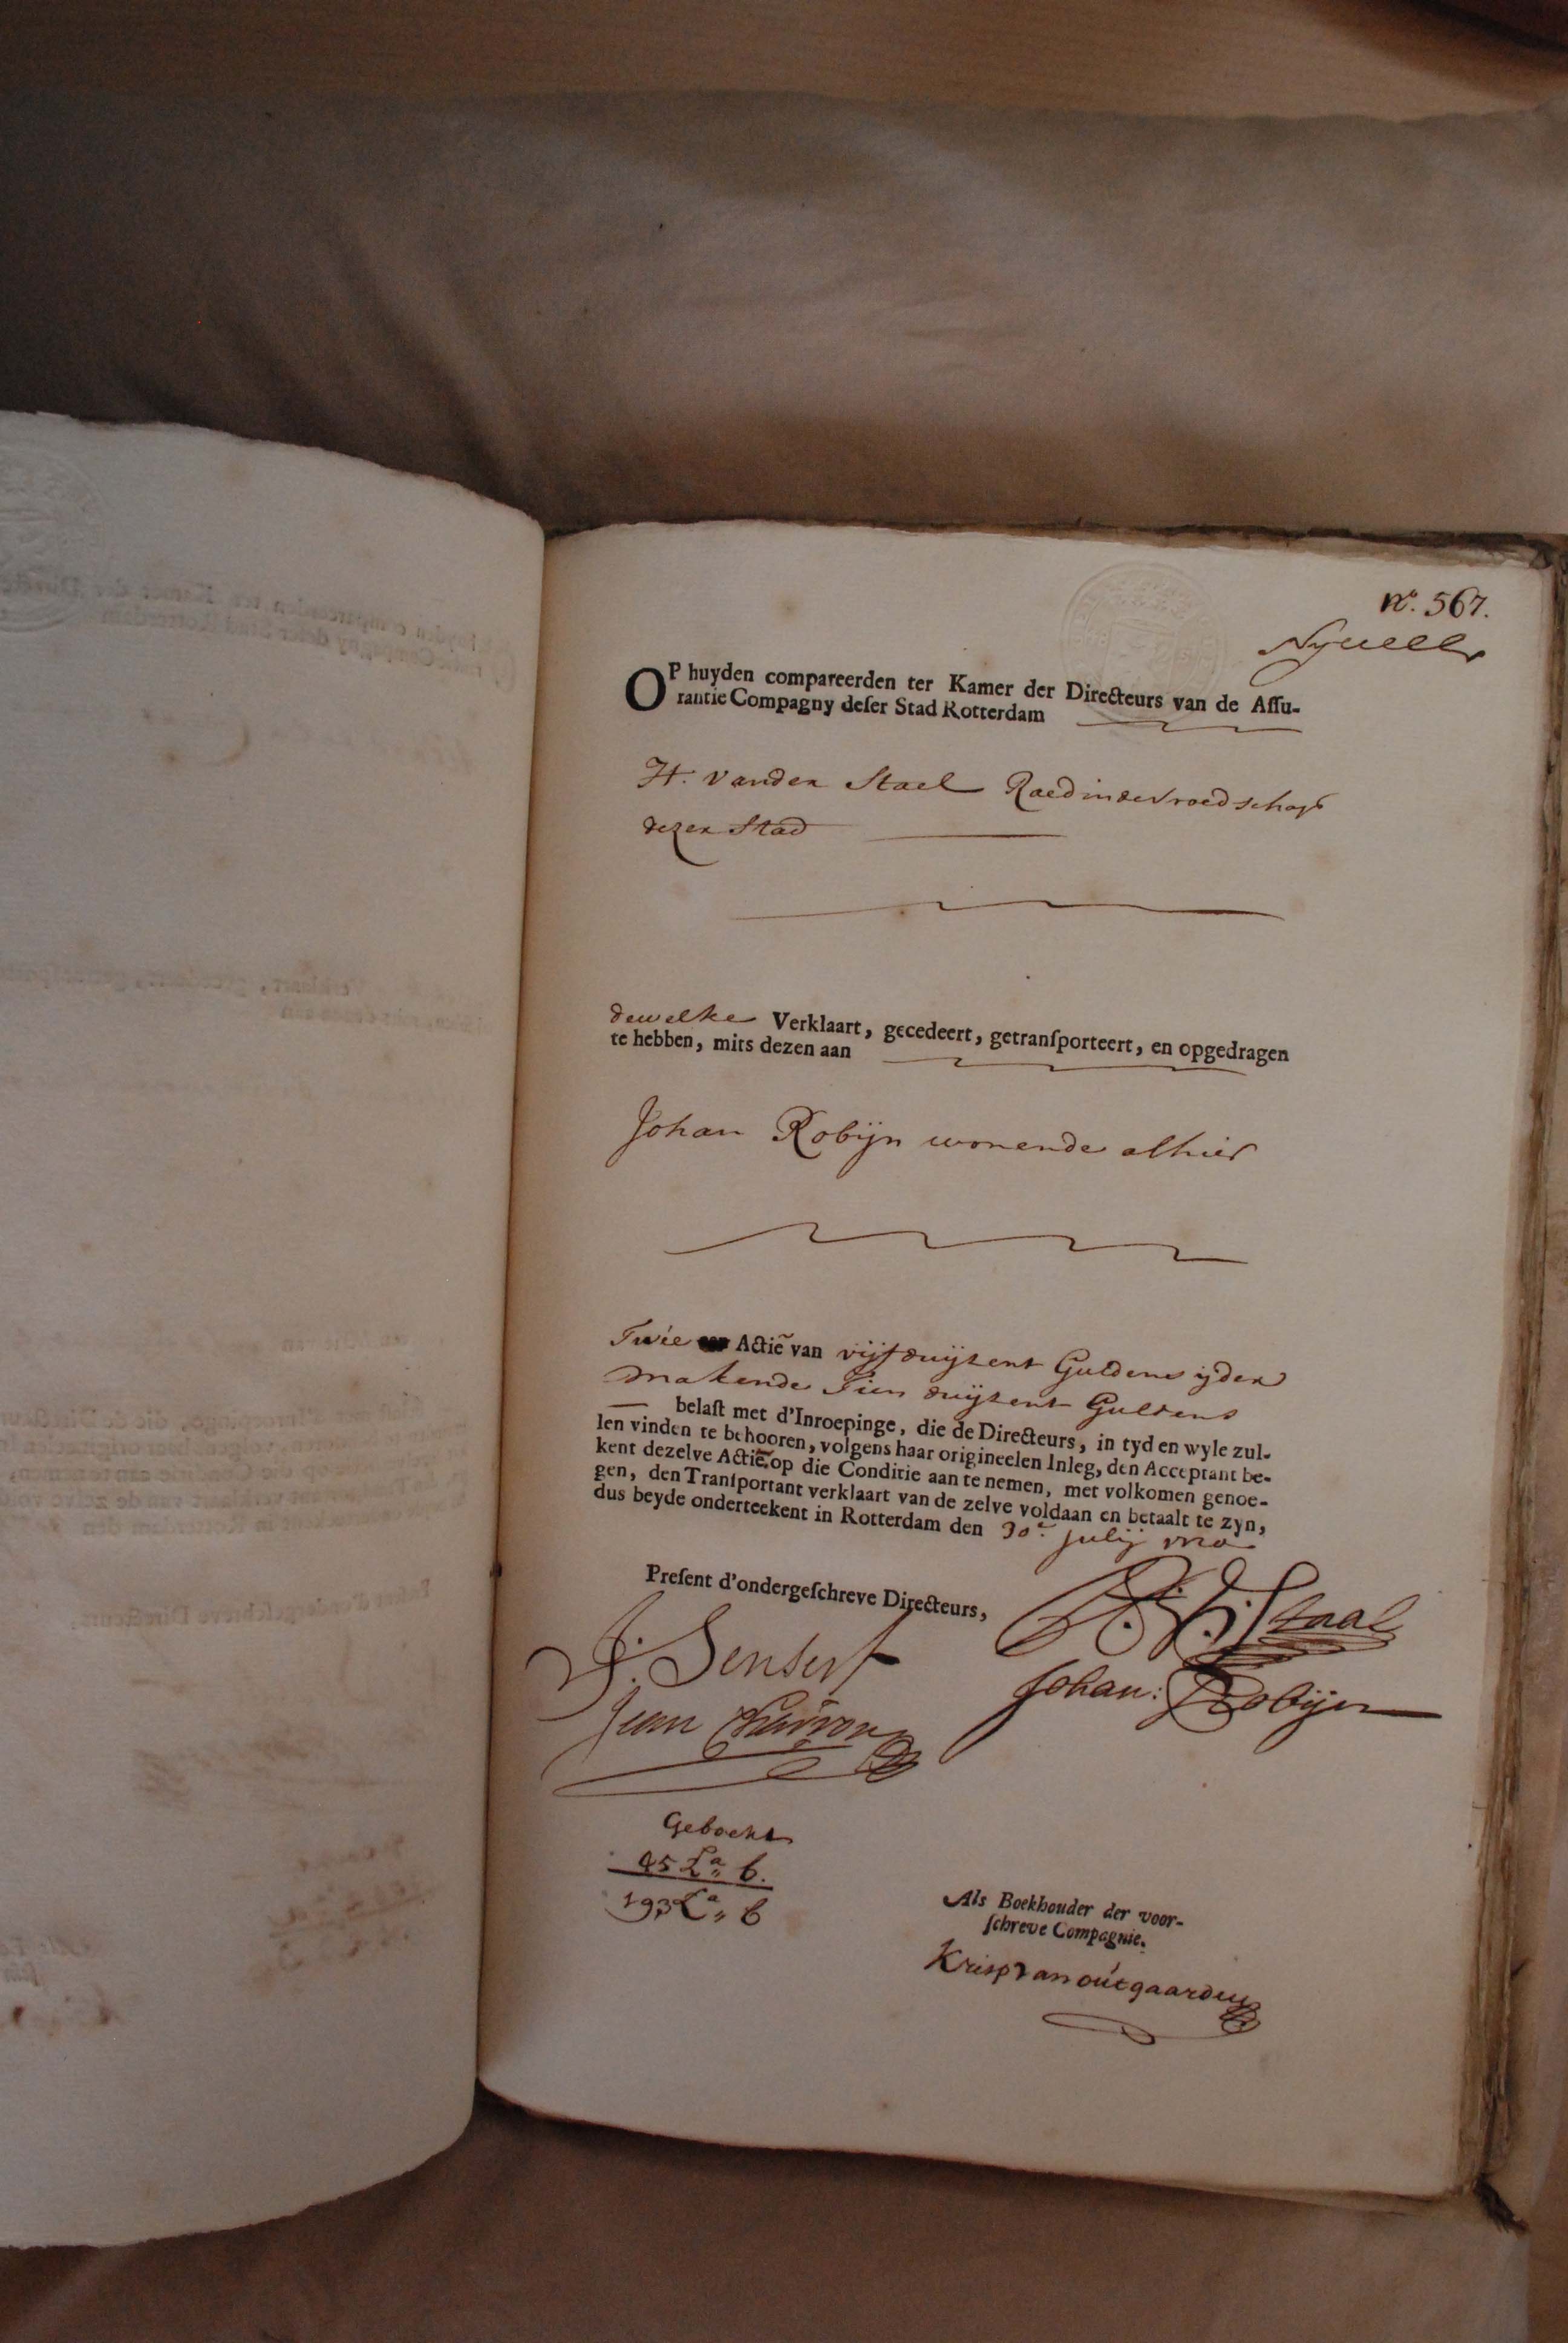 No. 567.
OP huyden compareerden ter Kamer der Directeurs van de Aſſu-
rantie Compagny deſer Stad Rotterdam
H. vanden Stael Raed in de vroedschap
dezer Stad
dewelke Verklaart, gecedeert, getranſporteert, en opgedragen
te hebben, mits dezen aan
Johan Robijn wonende alhier
Twee Actiẽ van vijf duijzent Guldens ijder
makende Tien duijzent Guldens
belaſt met d'Inroepinge, die de Directeurs, in tyd en wyle zul-
len vinden te behooren, volgens haar origineelen Inleg, den Acceptant be-
kent dezelve Actiẽ op die Conditie aan te nemen, met volkomen genoe-
gen, den Tranſportant verklaart van de zelve voldaan en betaalt te zyn,
dus beyde onderteekent in Rotterdam den 30e. julij 1720
Preſent d'ondergeſchreve Directeurs,
H. V. Staal
J. Senserf
Johan: Robijn
Jean
Geboekt
45 La„ b.
193 La„ b
Als Boekhouder der voor-
ſchreve Compagnie.
Krisp van outgaarden